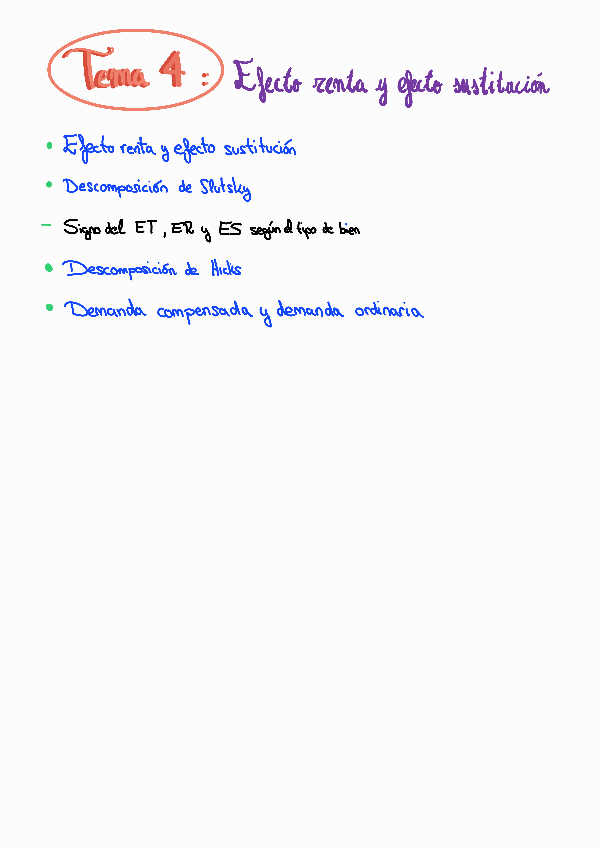 Tema 4 : Efecto renta y efecto sustitución
• Efecto renta y efecto sustitución
• Descomposición de Slutsky
– Signo del ET, ER y ES según el tipo de bien
• Descomposición de Hicks
• Demanda compensada y demanda ordinaria